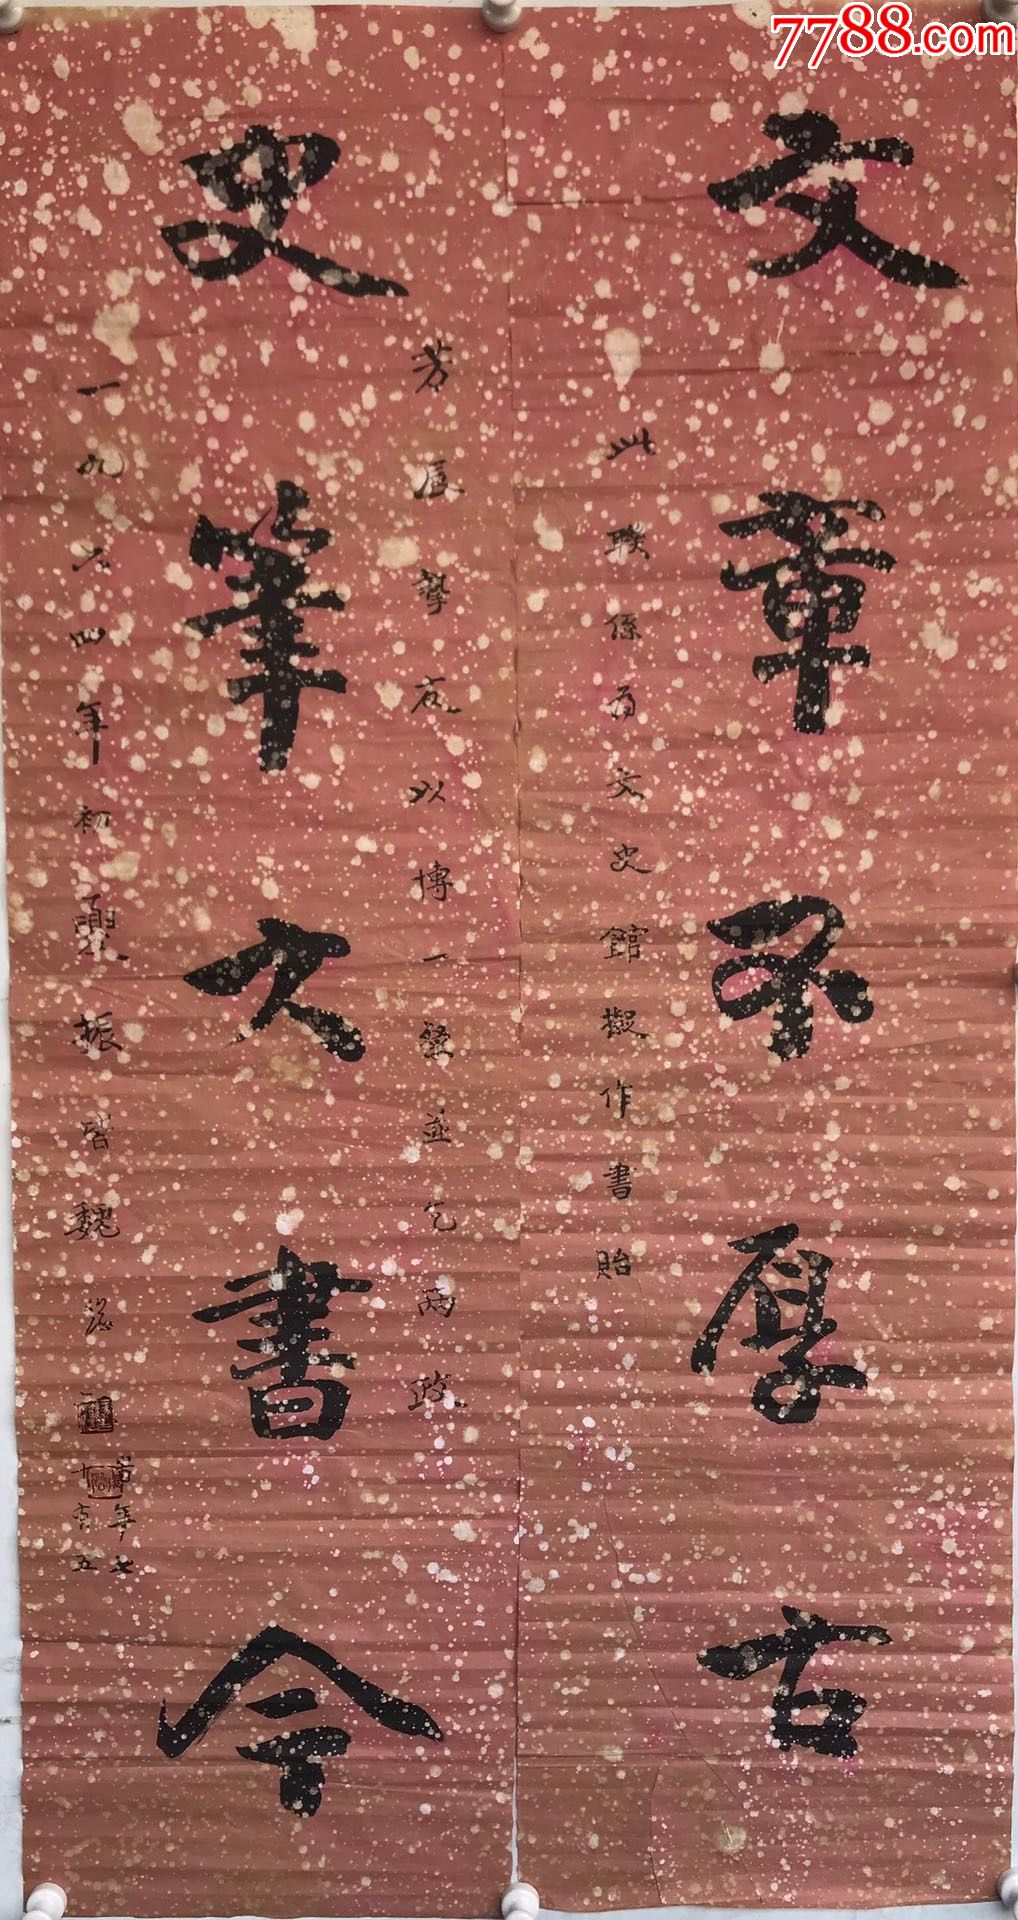 7788.com
文章不厚古
此聯係為文史館擬作書貽
芳辰摯友以博一粲並乞兩政
史筆大書今
一九六四年初夏振喈魏
时年七
十有五